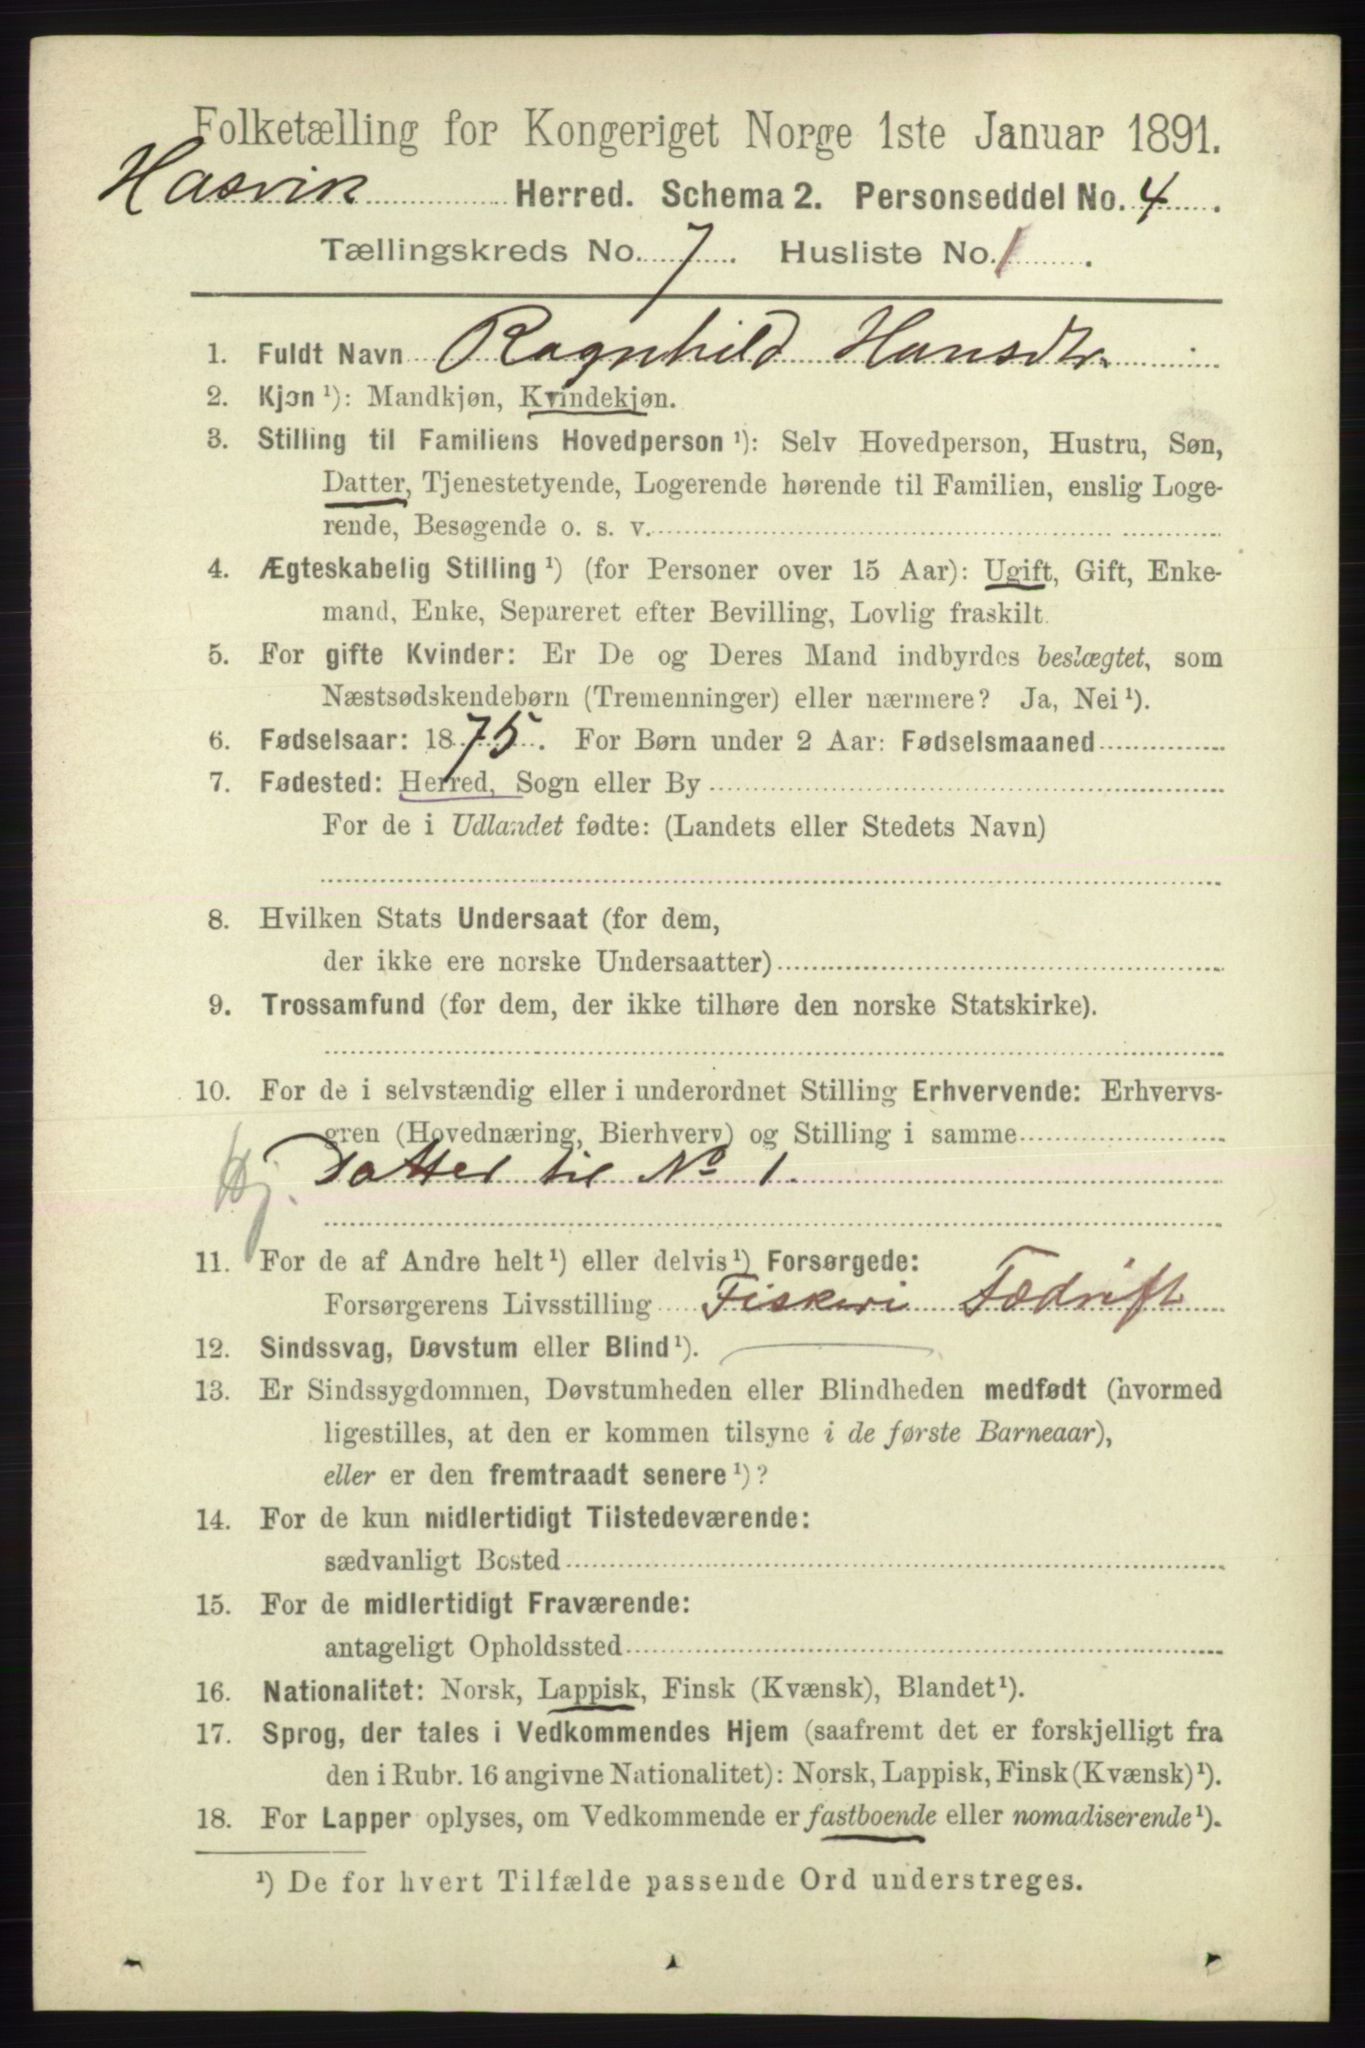 Folketælling for Kongeriget Norge 1ste Januar 1891.
Hasvik Herred. Schema 2. Personseddel No. 4.
Tællingskreds No. 7. Husliste No. 1.
1. Fuldt Navn Ragnhild Hansdtr.
2. Kjøn ¹): Mandkjøn, Kvindekjøn.
3. Stilling til Familiens Hovedperson ¹): Selv Hovedperson, Hustru, Søn,
Datter, Tjenestetyende, Logerende hørende til Familien, enslig Loge-
rende, Besøgende o. s. v.
4. Ægteskabelig Stilling ¹) (for Personer over 15 Aar): Ugift, Gift, Enke-
mand, Enke, Separeret efter Bevilling, Lovlig fraskilt.
5. For gifte Kvinder: Er De og Deres Mand indbyrdes beslægtet, som
Næstsødskendebørn (Tremenninger) eller nærmere? Ja, Nei ¹).
6. Fødselsaar: 1875. For Børn under 2 Aar: Fødselsmaaned
7. Fødested: Herred, Sogn eller By
For de i Udlandet fødte: (Landets eller Stedets Navn)
8. Hvilken Stats Undersaat (for dem,
der ikke ere norske Undersaatter)
9. Trossamfund (for dem, der ikke tilhøre den norske Statskirke).
10. For de i selvstændig eller i underordnet Stilling Erhvervende: Erhvervs-
gren (Hovednæring, Bierhverv) og Stilling i samme
Hj. Datter til No 1.
11. For de af Andre helt ¹) eller delvis ¹) Forsørgede:
Forsørgerens Livsstilling Fiskeri Fædrift
12. Sindssvag, Døvstum eller Blind ¹).
13. Er Sindssygdommen, Døvstumheden eller Blindheden medfødt (hvormed
ligestilles, at den er kommen tilsyne i de første Barneaar),
eller er den fremtraadt senere ¹)?
14. For de kun midlertidigt Tilstedeværende:
sædvanligt Bosted
15. For de midlertidigt Fraværende:
antageligt Opholdssted
16. Nationalitet: Norsk, Lappisk, Finsk (Kvænsk), Blandet ¹).
17. Sprog, der tales i Vedkommendes Hjem (saafremt det er forskjelligt fra
den i Rubr. 16 angivne Nationalitet): Norsk, Lappisk, Finsk (Kvænsk) ¹).
18. For Lapper oplyses, om Vedkommende er fastboende eller nomadiserende ¹).
¹) De for hvert Tilfælde passende Ord understreges.